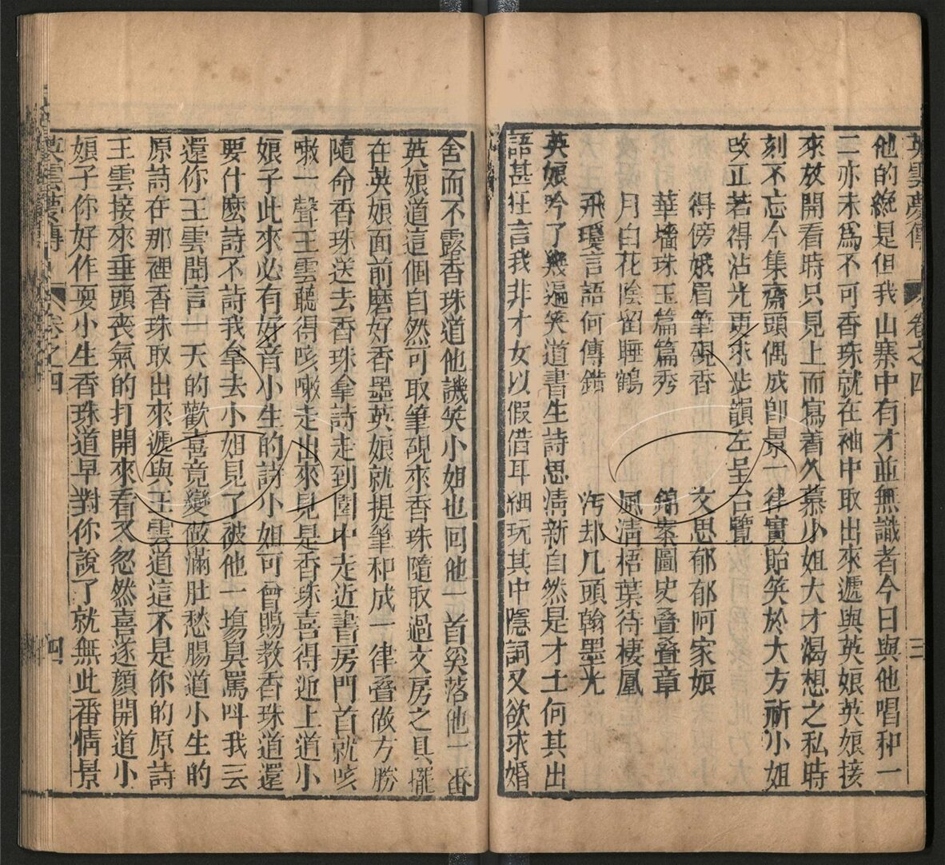 英雲夢傳 卷之四 三
他的纔是但我山寨中有才並無識者今日與他唱和一
二亦未爲不可香珠就在袖中取出來遞與英娘英娘接
來放開看時只見上面寫着久慕小姐大才渴想之私時
刻不忘今集齋頭偶成卽景一律實貽笑於大方祈小姐
改正若得沾光更求步韻左呈台覽
得傍娥眉筆硯香 文思郁郁阿家娘
華墻珠玉篇篇秀 錦案圖史叠叠章
月白花陰留睡鶴 風淸梧葉待棲凰
飛瓊言語何傳錯 汚却几頭翰墨光
英娘吟了幾遍笑道書生詩思淸新自然是才士何其出
語甚狂言我非才女以假借耳細玩其中隱詞又欲求婚
舍而不露香珠道他譏笑小姐也回他一首奚落他一番
英娘道這個自然可取筆硯來香珠隨取過文房之具擺
在英娘面前磨好香墨英娘就提筆和成一律叠做方勝
隨命香珠送去香珠拿詩走到園中走近書房門首就咳
嗽一聲王雲聽得咳嗽走出來見是香珠喜得近上道小
娘子此來必有好音小生的詩小姐可曾賜教香珠道還
要什麽詩不詩我拿去小姐見了被他一塲臭罵呌我云
還你王雲聞言一天的歡喜竟變做滿肚愁腸道小生的
原詩在那裡香珠取出來遞與王雲道這不是你的原詩
王雲接來垂頭喪氣的打開來看又忽然喜逐顏開道小
娘子你好作耍小生香珠道早對你說了就無此番情景
英雲夢傳 卷之四 四